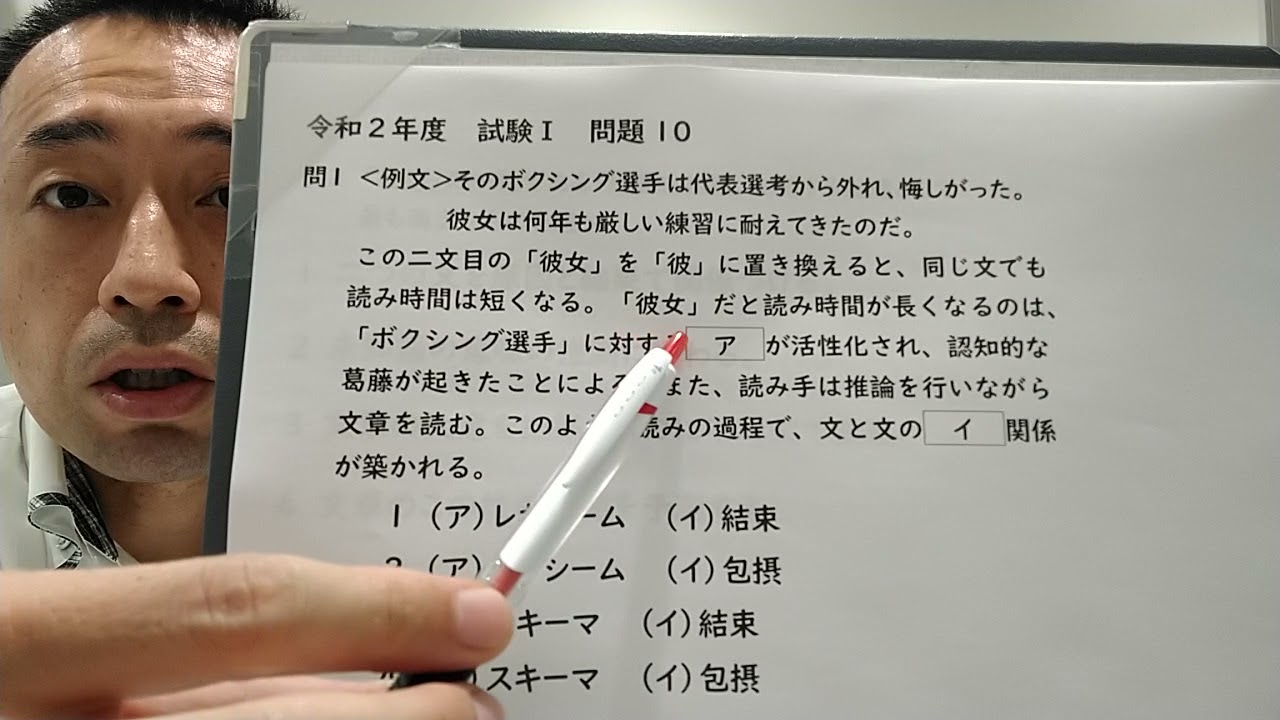 令和2年度 試験Ⅰ 問題10
問1 <例文>そのボクシング選手は代表選考から外れ、悔しがった。
彼女は何年も厳しい練習に耐えてきたのだ。
この二文目の「彼女」を「彼」に置き換えると、同じ文でも
読み時間は短くなる。「彼女」だと読み時間が長くなるのは、
「ボクシング選手」に対す ア が活性化され、認知的な
葛藤が起きたことによる また、読み手は推論を行いながら
文章を読む。このよ 読みの過程で、文と文の イ 関係
が築かれる。
1 (ア)レ ーム (イ)結束
2 (ア) シーム (イ)包摂
キーマ (イ)結束
スキーマ (イ)包摂